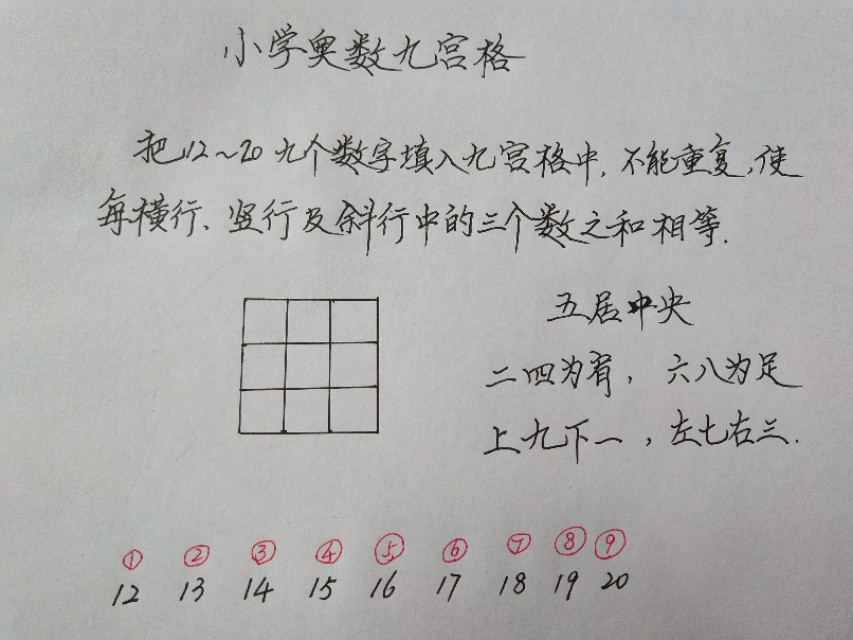 小学奥数九宫格
把12~20九个数字填入九宫格中,不能重复,使
每横行、竖行及斜行中的三个数之和相等.
五居中央
二四为肩,六八为足
上九下一,左七右三.
① ② ③ ④ ⑤ ⑥ ⑦ ⑧ ⑨
12 13 14 15 16 17 18 19 20